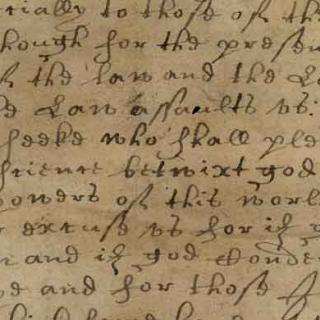 tially to those of the
hough for the presen
f the law and the Lo
e Law assaults vs:
heeke who shall ple
science betwixt god
powers of this worl
excuse vs for if g
and if god Conde
e and for those